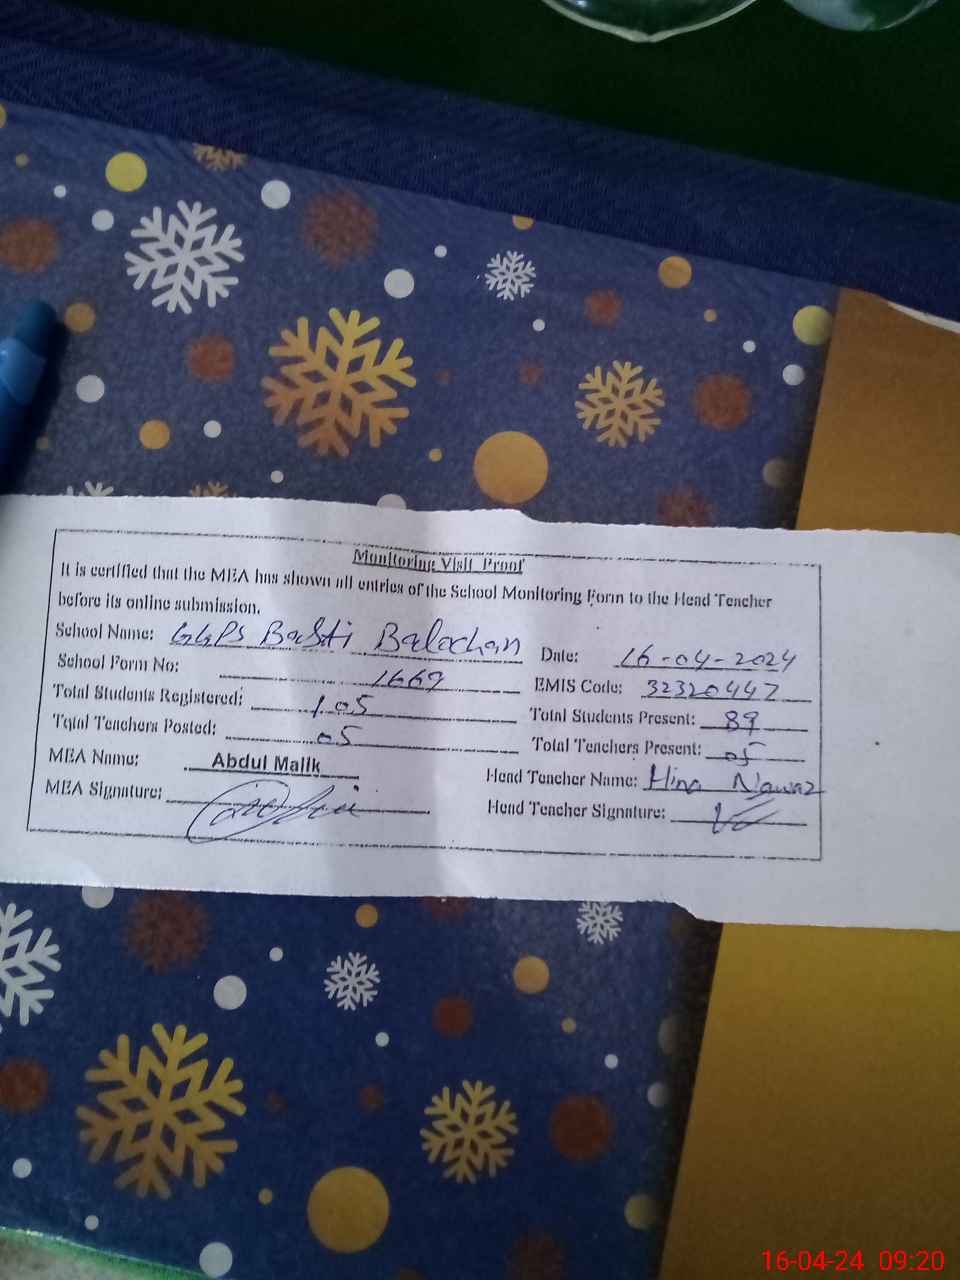 Monitoring Visit Proof
It is certified that the MEA has shown all entries of the School Monitoring Form to the Head Teacher
before its online submission.
School Name: GGPS Basti Balochan Date: 16-04-2024
School Form No: 1669 EMIS Code: 32320447
Total Students Registered: 105 Total Students Present: 89
Total Teachers Posted: 05 Total Teachers Present: 05
MEA Name: Abdul Malik Head Teacher Name: Hina Nawaz
MEA Signature: Head Teacher Signature:
16-04-24 09:20